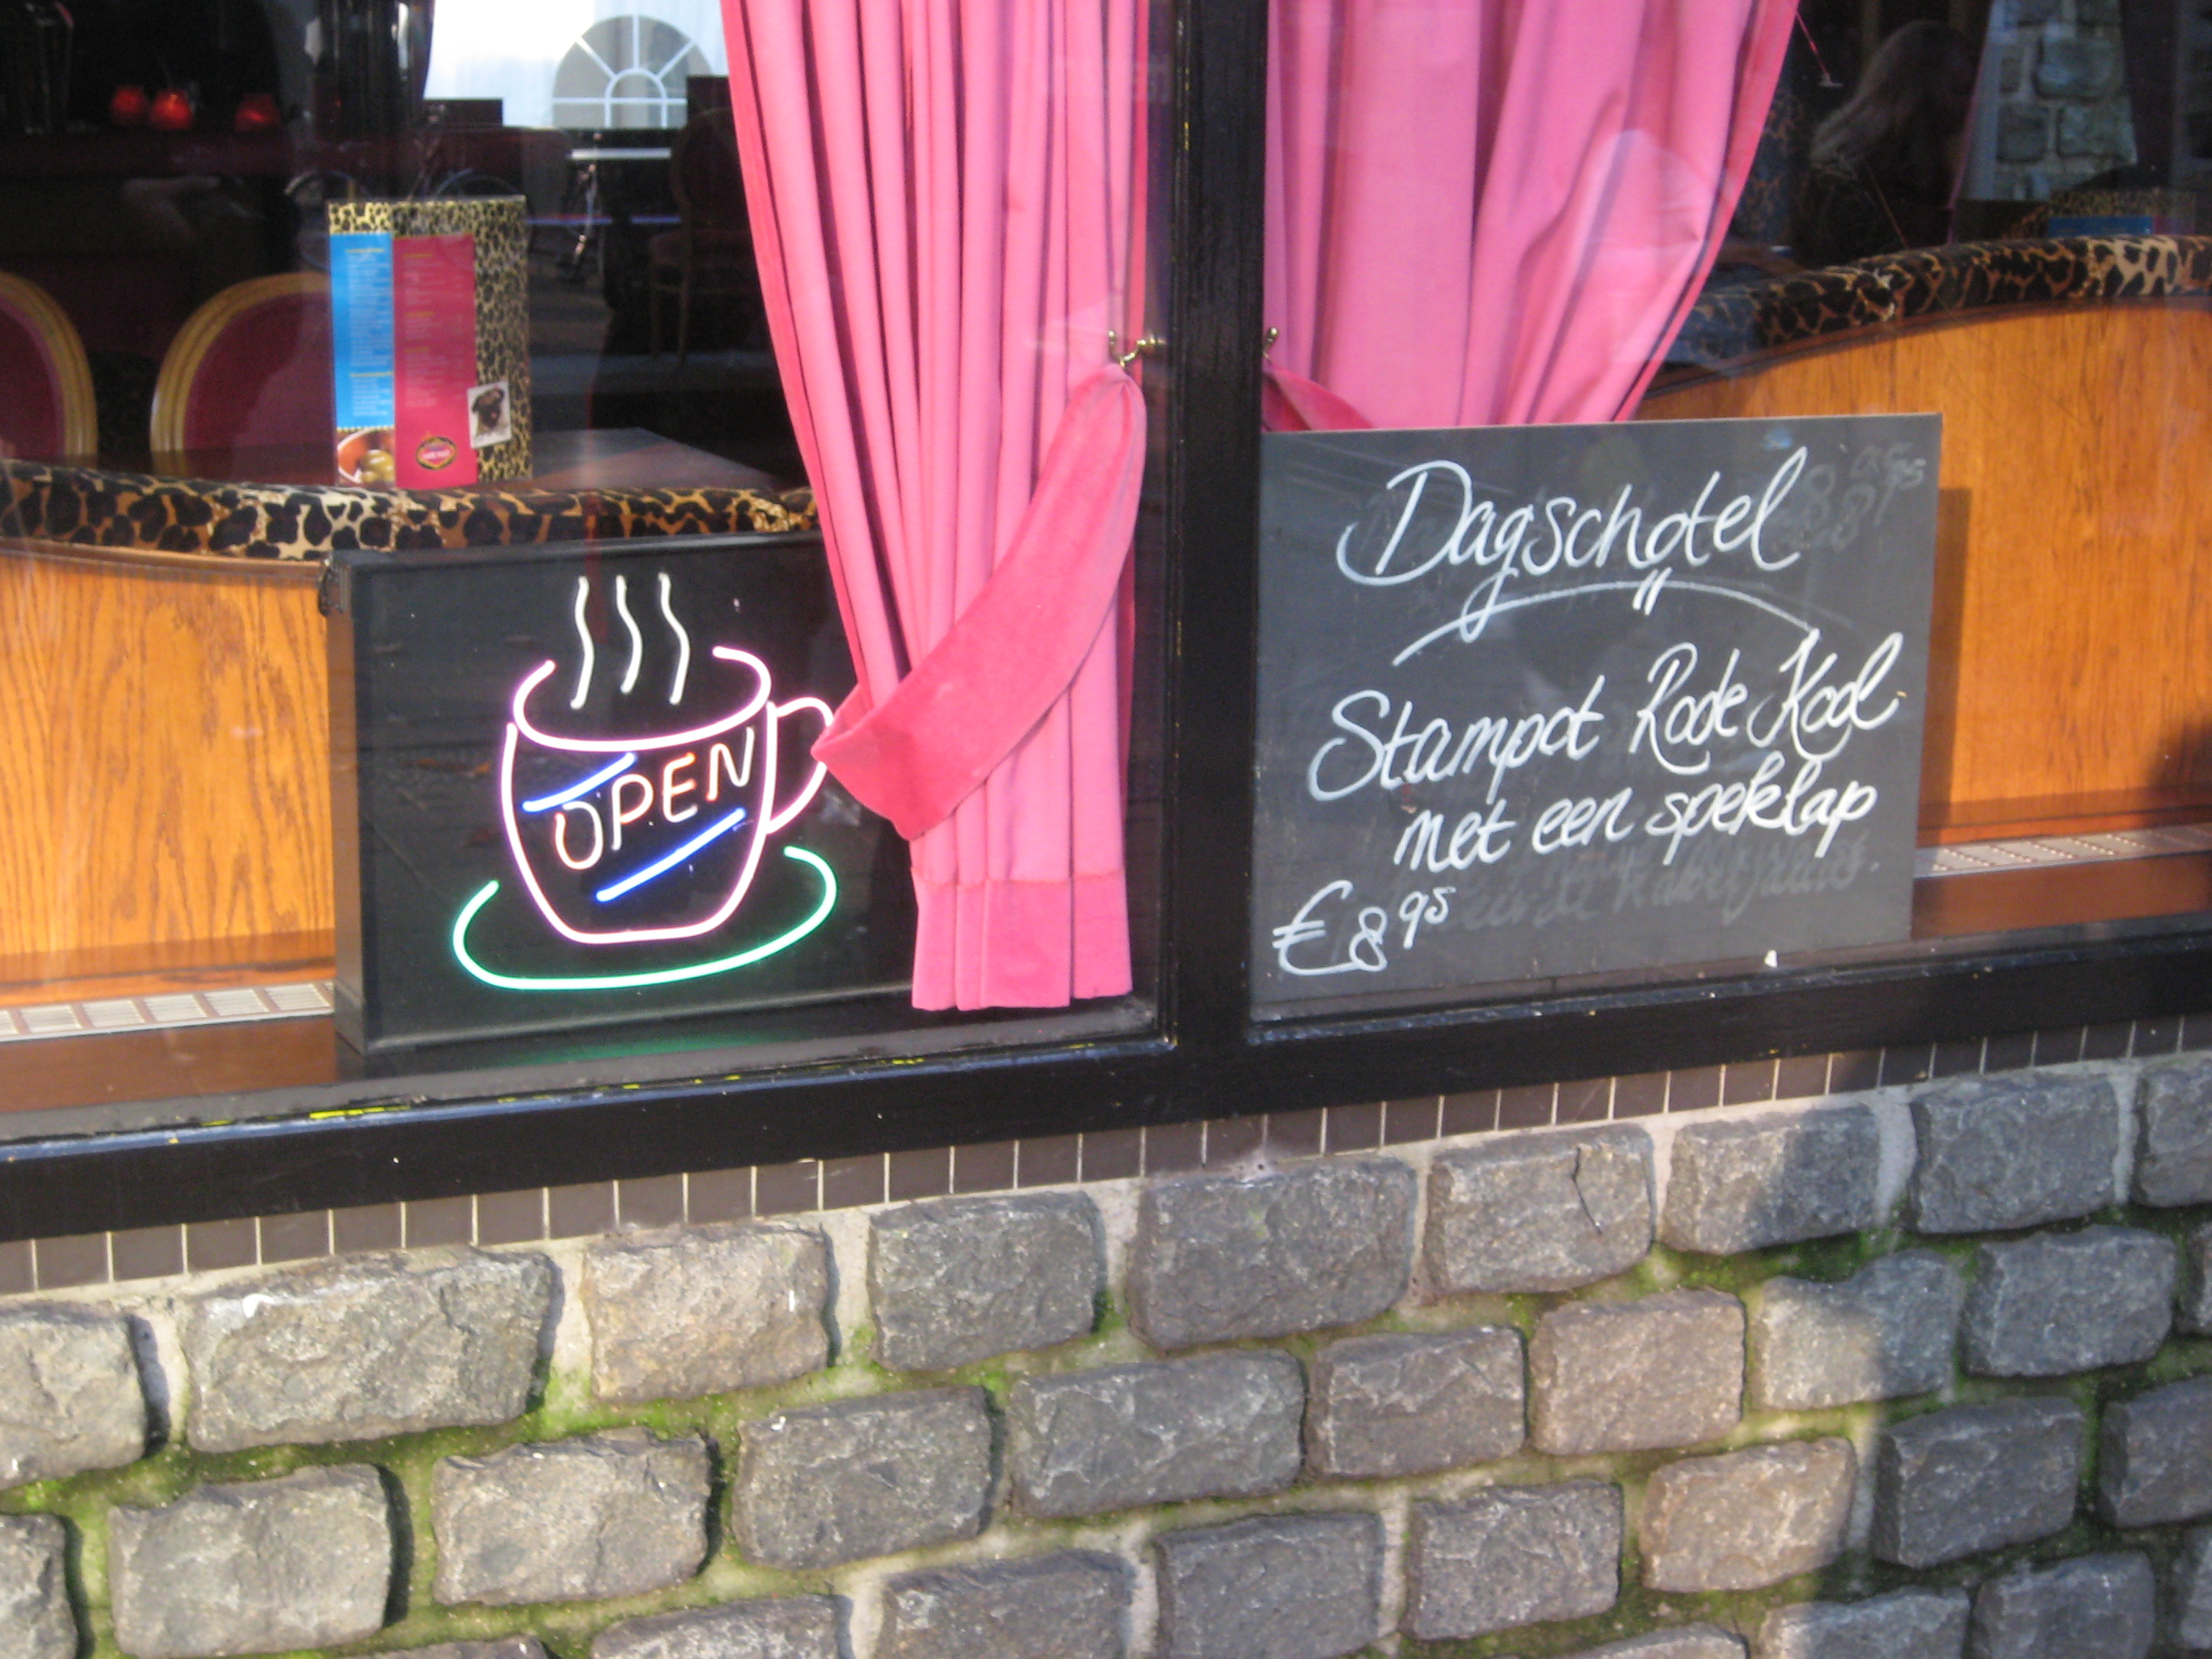 OPEN
Dagschotel
Stampot Rode Kool
met een speklap
€8,95